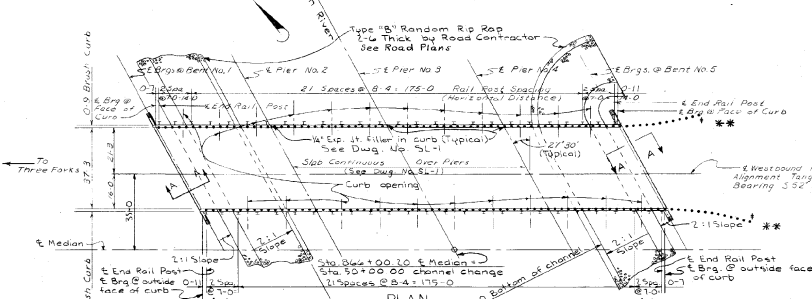 River
Type "B" Random Rip Rap
2-6 Thick by Road Contractor
See Road Plans
0-9 Brush Curb
℄ Brgs. @ Bent No. 1
℄ Pier No. 2
℄ Pier No. 3
℄ Pier No. 4
℄ Brgs. @ Bent No. 5
0-7
2 Spa.
21 Spaces @ 8-4 = 175-0
Rail Post Spacing
(Horizontal Distance)
0-11
℄ Brg @
Face of
Curb
℄ End Rail Post
℄ End Rail Post
℄ Brg @ Face of Curb
**
¼" Exp. Jt. Filler in curb (Typical)
See Dwg. No. SL-1
27°30'
(Typical)
To
Three Forks
37-3
Slab Continuous Over Piers
(See Dwg. No. SL-1)
Curb opening
A
A
A
A
℄ Westbound
Bearing S 52°
35-0
**
2:1 Slope
℄ Median
2:1 Slope
2:1
Slope
2:1
Slope
Sta. 866+00.20 ℄ Median =
Sta. 50+00.00 channel change
21 Spaces @ 8-4 = 175-0
Bottom of channel
℄ End Rail Post
℄ Brg. @ outside
face of curb
0-11
2 Spa.
@ 7-0
℄ End Rail Post
℄ Brg. @ outside face
of curb
2 Spa.
0-7
Curb
PLAN